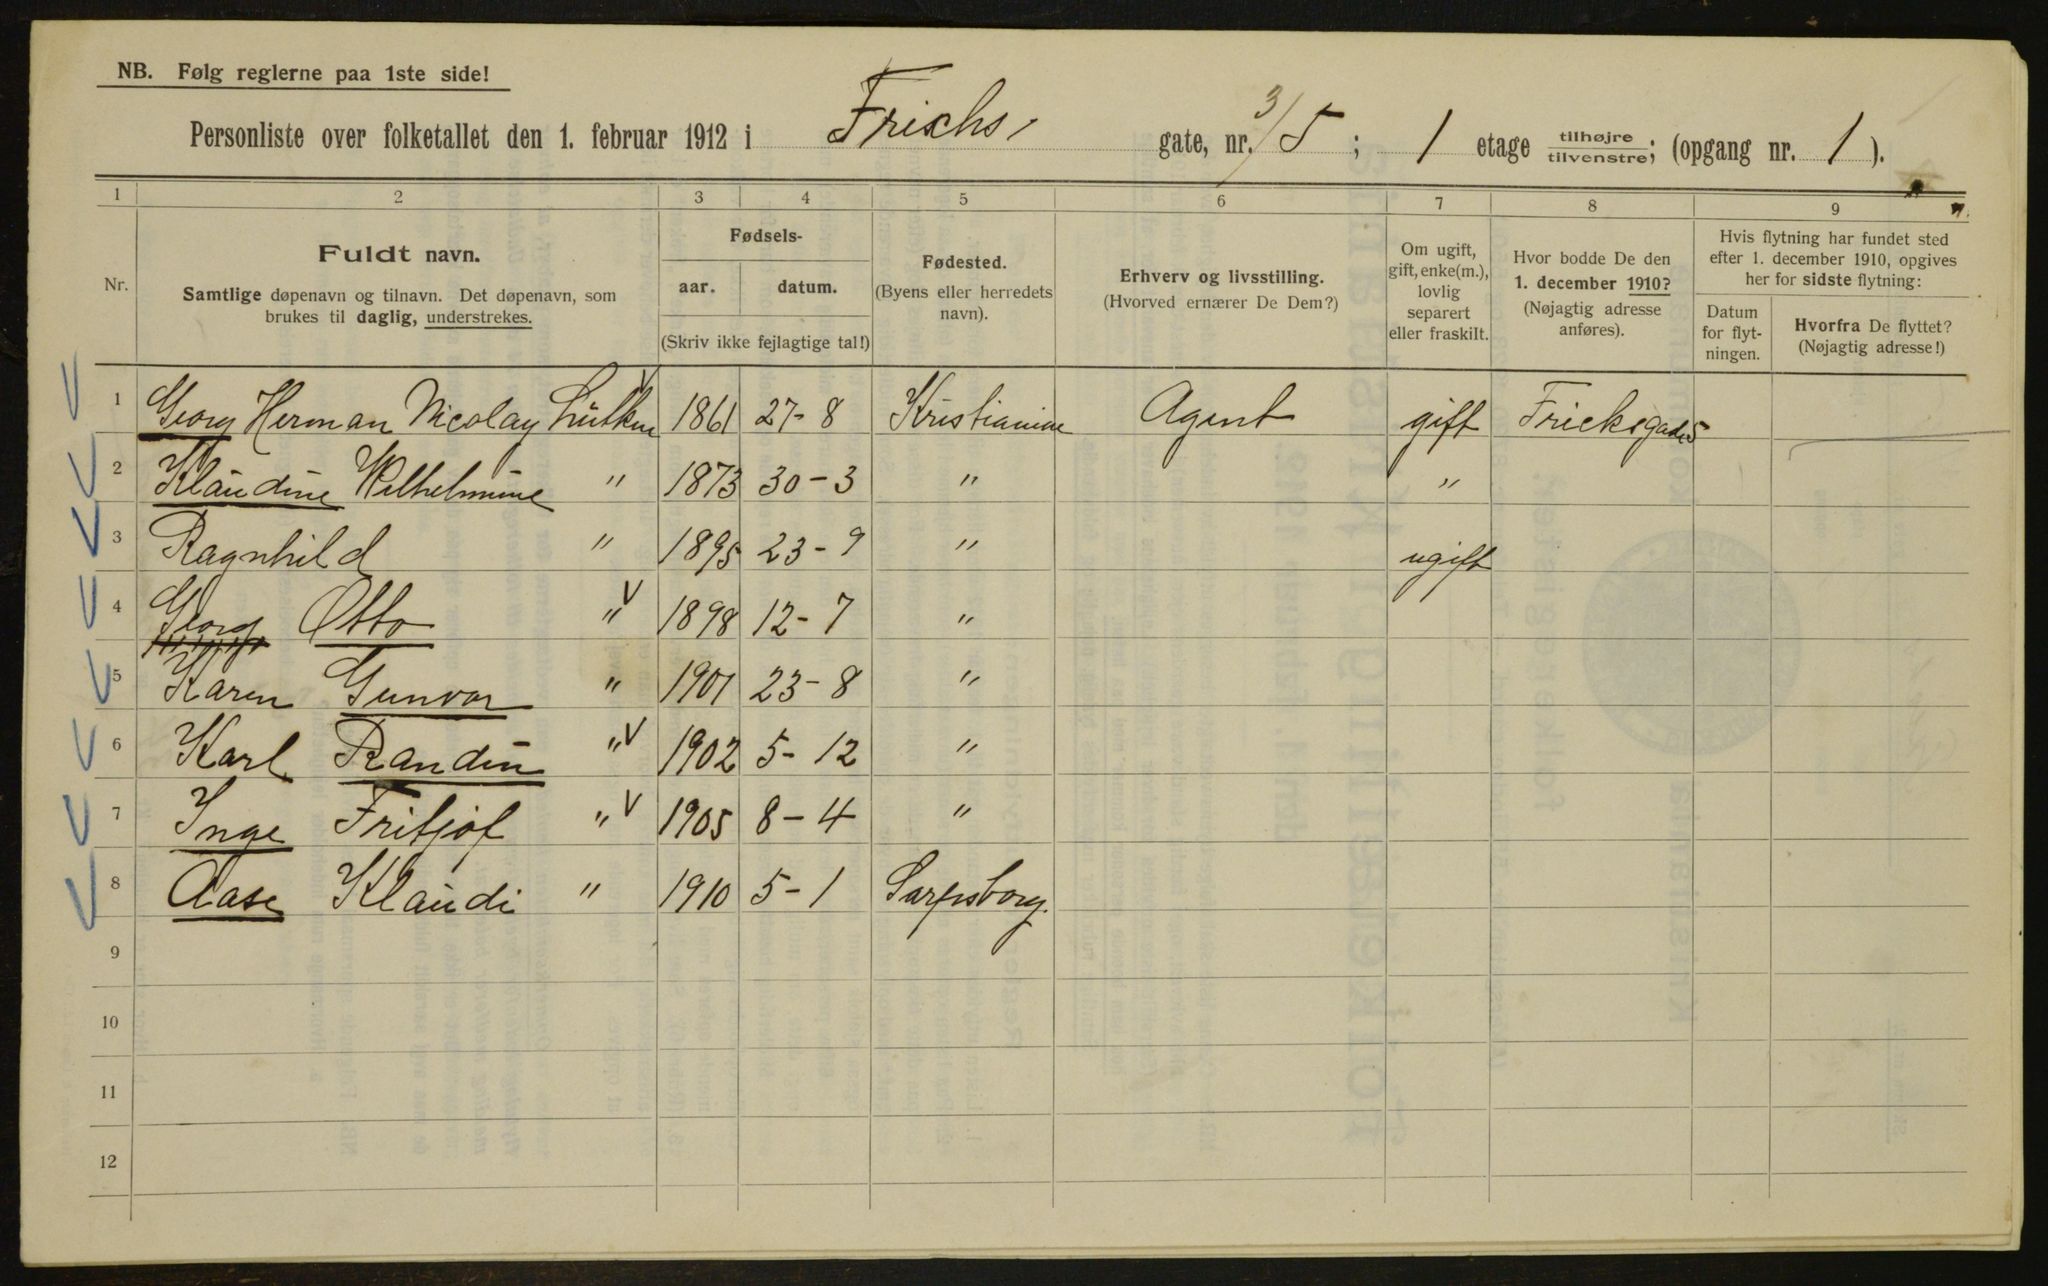 NB. Følg reglerne paa 1ste side!
Personliste over folketallet den 1. februar 1912 i Frichs, gate, nr. 3/5 ; 1 etage tilhøjre tilvenstre; (opgang nr. 1 ).
1 2 3 4 5 6 7 8 9
Nr.
Fuldt navn.
Samtlige døpenavn og tilnavn. Det døpenavn, som
brukes til daglig, understrekes.
Fødsels-
aar. datum.
(Skriv ikke fejlagtige tal!)
Fødested.
(Byens eller herredets
navn).
Erhverv og livsstilling.
(Hvorved ernærer De Dem?)
Om ugift,
gift, enke(m.),
lovlig
separert
eller fraskilt.
Hvor bodde De den
1. december 1910?
(Nøjagtig adresse
anføres).
Hvis flytning har fundet sted
efter 1. december 1910, opgives
her for sidste flytning:
Datum
for flyt-
ningen.
Hvorfra De flyttet?
(Nøjagtig adresse!)
1 Georg Herman Nicolay Lütken 1861 27-8 Kristiania Agent gift Fricksgade 5
2 Klaudine Wilhelmine " 1873 30-3 " "
3 Ragnhild " 1895 23-9 " ugift
4 Georg Otto " 1898 12-7 "
5 Karen Gunvor " 1901 23-8 "
6 Karl Randin " 1902 5-12 "
7 Inge Fritjof " 1905 8-4 "
8 Aase Klaudi " 1910 5-1 Sarpsborg.
9
10
11
12